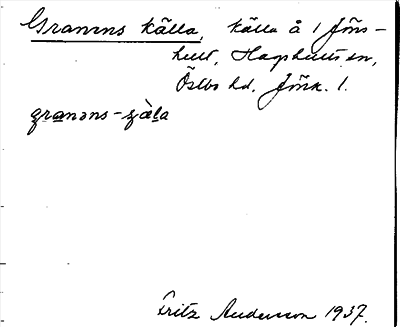 Granens källa, källa å 1 Jöns-
hult, Hagshults sn,
Östbo hd, Jönk. l.
granəns-ɕäla
Fritz Andersson 1937.